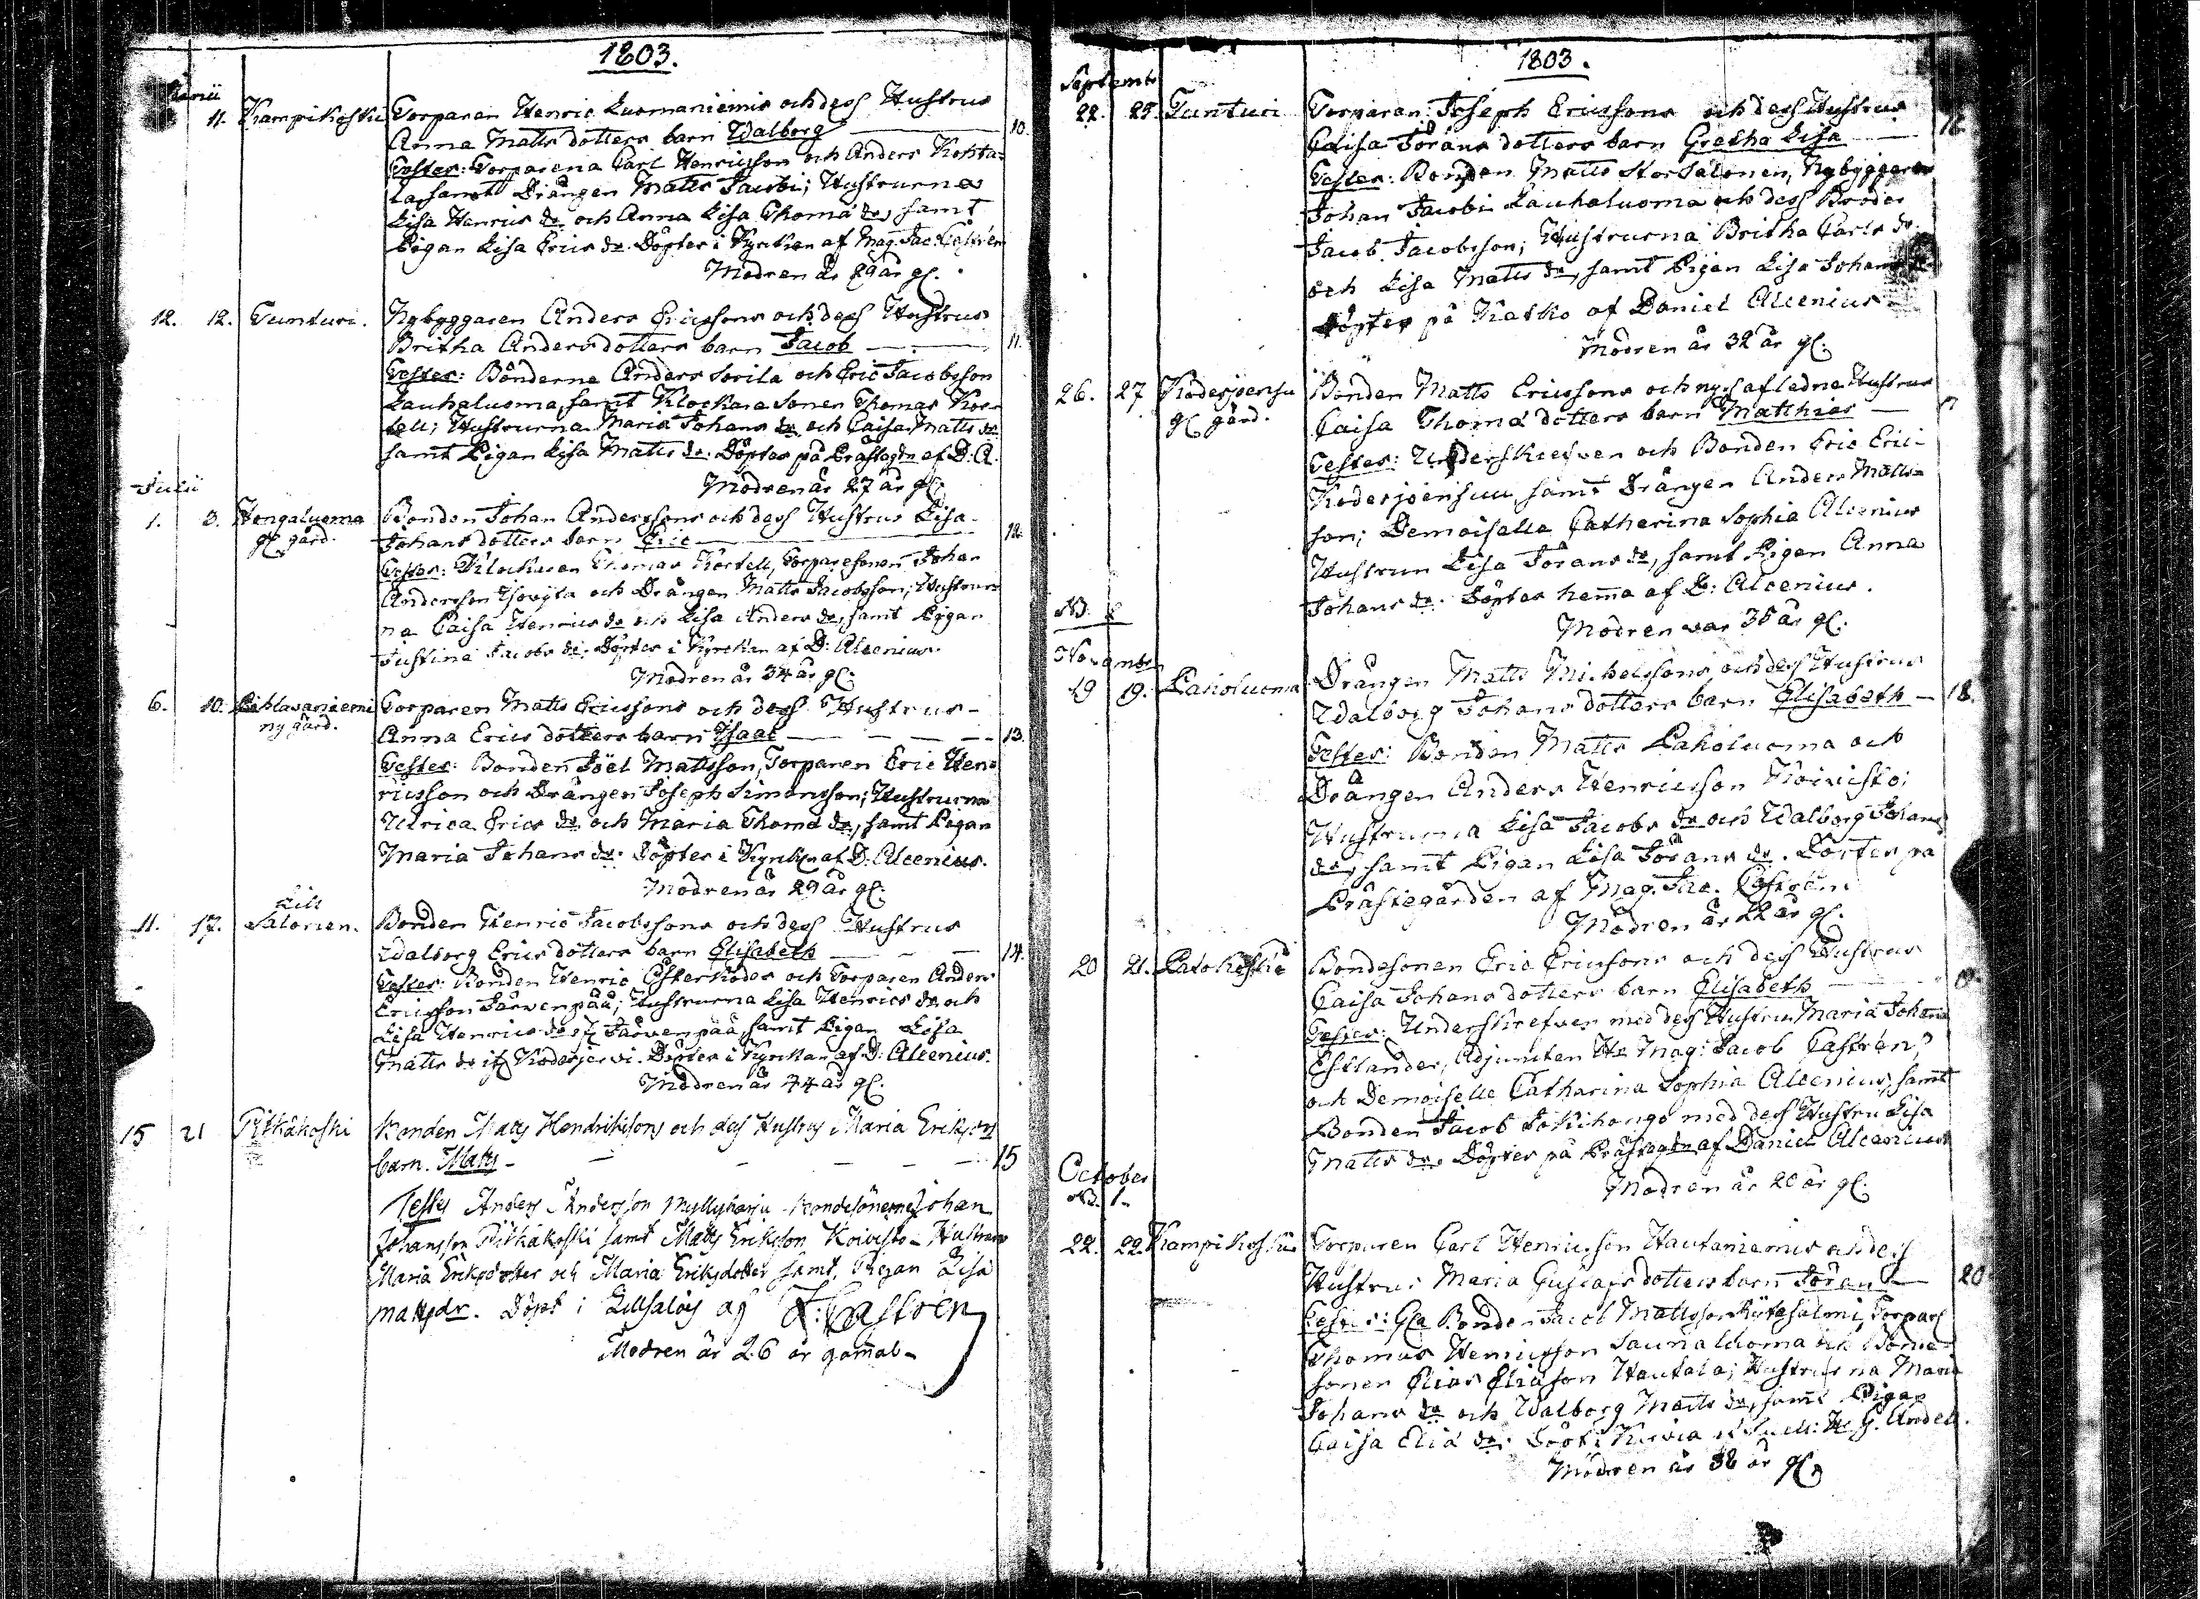 1803.
Junii
11. Kampikoski Torparen Henric Luomaniemis och dess Hustrus
Anna Matts dotters barn Walborg — 10.
Testes: Torparena Carl Henricsson och Anders Kohta-
la samt Drängen Matts Jacobi; Hustrurna
Lisa Henrics dr och Anna Lisa Thomæ dr, samt
Pigan Lisa Erics dr. Döptes i Kyrkan af Mag. Jac. Castrén
Modren är 29 år gl.
12. 12. Tunturi. Nybyggaren Anders Ericssons och dess Hustrus
Britha Anders dotters barn Jacob — 11.
Testes: Bönderne Anders Sorila och Eric Jacobsson
Lauhaluoma, samt Klockare Sonen Thomas Kor-
tell; Hustrurna Maria Johans dr och Caisa Matts dr
samt Pigan Lisa Matts dr. Döptes på Prästagdn af D. A.
Modren är 27 år gl.
Julii
1. 3. Hengaluoma Bonden Johan Anderssons och dess Hustrus Lisa
gl gård. Johans dotters barn Eric — 12.
Testes: Klockaren Thomas Kortell, Torparesonen Johan
Andersson och Drängen Matts Jacobsson; Hustrur-
na Caisa Henrics dr och Lisa Anders dr, samt Pigan
Justina Jacobs dr. Döptes i Kyrkan af D. Alcenius.
Modren är 34 år gl.
6. 10. Pihlavaniemi Torparen Matts Ericssons och dess Hustrus
ny gård. Anna Erics dotters barn Isaac — 13.
Testes: Bonden Joël Mattsson, Torparen Eric Hen-
ricsson och Drängen Joseph Simonsson; Hustrurna
Ulrica Erics dr och Maria Thomæ dr, samt Pigan
Maria Johans dr. Döptes i Kyrkn af D. Alcenius.
Modren är 29 år gl.
Lill
11. 17. Salonen. Bonden Henric Jacobssons och dess Hustrus
Walborg Erics dotters barn Elisabeth — 14.
Testes: Bonden Henric Österköder och Torparen Anders
Ericsson Järvenpää; Hustrurna Lisa Henrics dr och
Lisa Henrics dr Järvenpää, samt Pigan Lisa
Matts dr Koderjervi. Döptes i Kyrkan af D. Alcenius.
Modren är 44 år gl.
15 21 Pitkäkoski Bonden Matts Hendrikssons och dess Hustrus Maria Eriksdrs
barn. Matts — 15
Testes Anders Andersson Myllyharju Bondesönerne Johan
Johansson Pitkäkoski samt Matts Eriksson Koivisto - Hustrurna
Maria Eriksdotter och Maria Eriksdotter samt, Pigan Lisa
Mattsdr. Döpt i Lillsalois af J: Castrén
Modren är 26 år gammal -
1803.
Septemb
22. 25. Tunturi Torparen Joseph Ericssons och dess Hustrus
Caisa Jörans dotters barn Gretha Lisa — 16
Testes: Bonden Matts Stor Salonen, Nybyggaren
Johan Jacobi Lauhaluoma och dess Broder
Jacob Jacobsson; Hustrurna Britha Carls dr
och Lisa Matts dr, samt Pigan Lisa Johans dr
Döptes på Katko af Daniel Alcenius
Modren är 32 år gl.
26. 27 Koderjoensu Bonden Matts Ericssons och nyss afledna Hustrus
gl gård. Caisa Thomæ dotters barn Matthias —
Testes: Underskrefven och Bonden Eric Eric-
Koderjoensuu, samt Drängen Anders Matts-
son; Demoiselle Catharina Sophia Alcenius
Hustrun Lisa Jörans dr, samt Pigan Anna
Johans dr. Döptes hemma af D: Alcenius.
Modren var 35 år gl.
NB.
November
19 19. Pakoluoma Drängen Matts Michelssons och dess Hustrus
Walborg Johans dotters barn Elisabeth — 18.
Testes: Bonden Matts Pakoluoma och
Drängen Anders Henricsson Koivisto;
Hustrurna Lisa Jacobs dr och Walborg Johans
dr, samt Pigan Lisa Jörans dr. Döptes på
Prästegården af Mag. Jac. Castrén.
Modren är 22 år gl.
20 21. Latokoski Bondesonen Eric Ericssons och dess Hustrus
Caisa Johans dotters barn Elisabeth —
Testes: Underskrefven med dess Hustru Maria Johanna
Estlander, Adjuncten Hr Mag: Jacob Castrén,
och Demoiselle Catharina Sophia Alcenius, samt
Bonden Jacob Jokihongo med dess Hustru Lisa
Matts dr. Döptes på Prästagdn af Daniel Alcenius
Modren är 20 år gl.
October
NB. 1.
22. 22. Kampikoski Torparen Carl Henricsson Hautaniemis och dess
Hustrus Maria Gustafs dotters barn Jöran — 20.
Testes: Bonden Jacob Mattsson Kytösalmi, Torparen
Thomas Henricsson Saunaluoma och Bonde-
sonen Elias Eliasson Hautala; Hustrurna Maria
Johans dr och Walborg Matts dr, samt Pigan
Caisa Eliæ dr. Döpt i
Modren är 38 år gl.